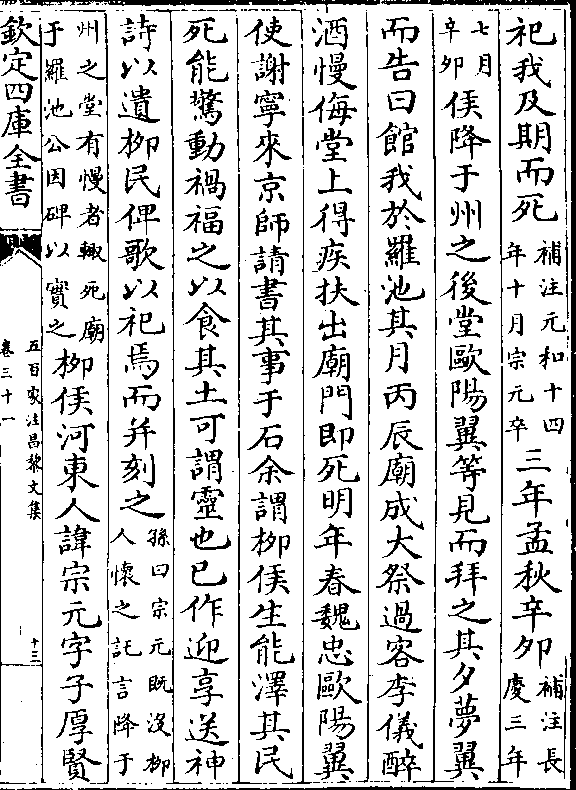 祀我及期而死補注元和十四年十月宗元卒三年孟秋辛卯補注長慶三年
七月辛卯侯降于州之後堂歐陽翼等見而拜之其夕夢翼
而告曰館我於羅池其月丙辰廟成大祭過客李儀醉
酒慢侮堂上得疾扶出廟門即死明年春魏忠歐陽翼
使謝寧來京師請書其事于石余謂栁侯生能澤其民
死能驚動禍福之以食其土可謂靈也已作迎享送神
詩以遺栁民俾歌以祀焉而并刻之孫曰宗元既沒栁人懷之託言降于
州之堂有慢者輙死廟于羅池公因碑以實之栁侯河東人諱宗元字子厚賢
欽定四庫全書
五百家注昌黎文集
卷三十一
十三